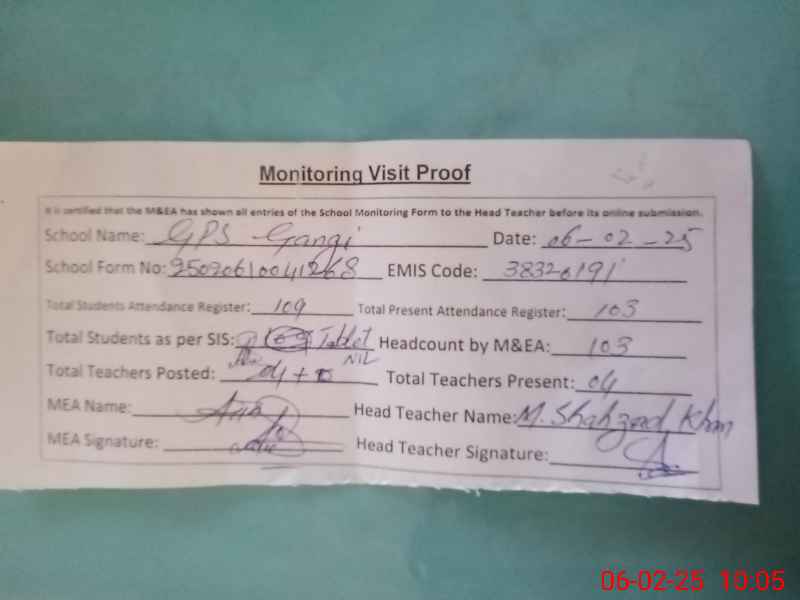 Monitoring Visit Proof
It is certified that the M&EA has shown all entries of the School Monitoring Form to the Head Teacher before its online submission.
School Name: GPS Gangi Date: 06-02-25
School Form No: 25020610041268 EMIS Code: 38320191
Total Students Attendance Register: 109 Total Present Attendance Register: 103
Total Students as per SIS: Tablet NIL Headcount by M&EA: 103
Total Teachers Posted: 04+0 Total Teachers Present: 04
MEA Name: Head Teacher Name: M. Shahzad Khan
MEA Signature: Head Teacher Signature:
06-02-25 10:05